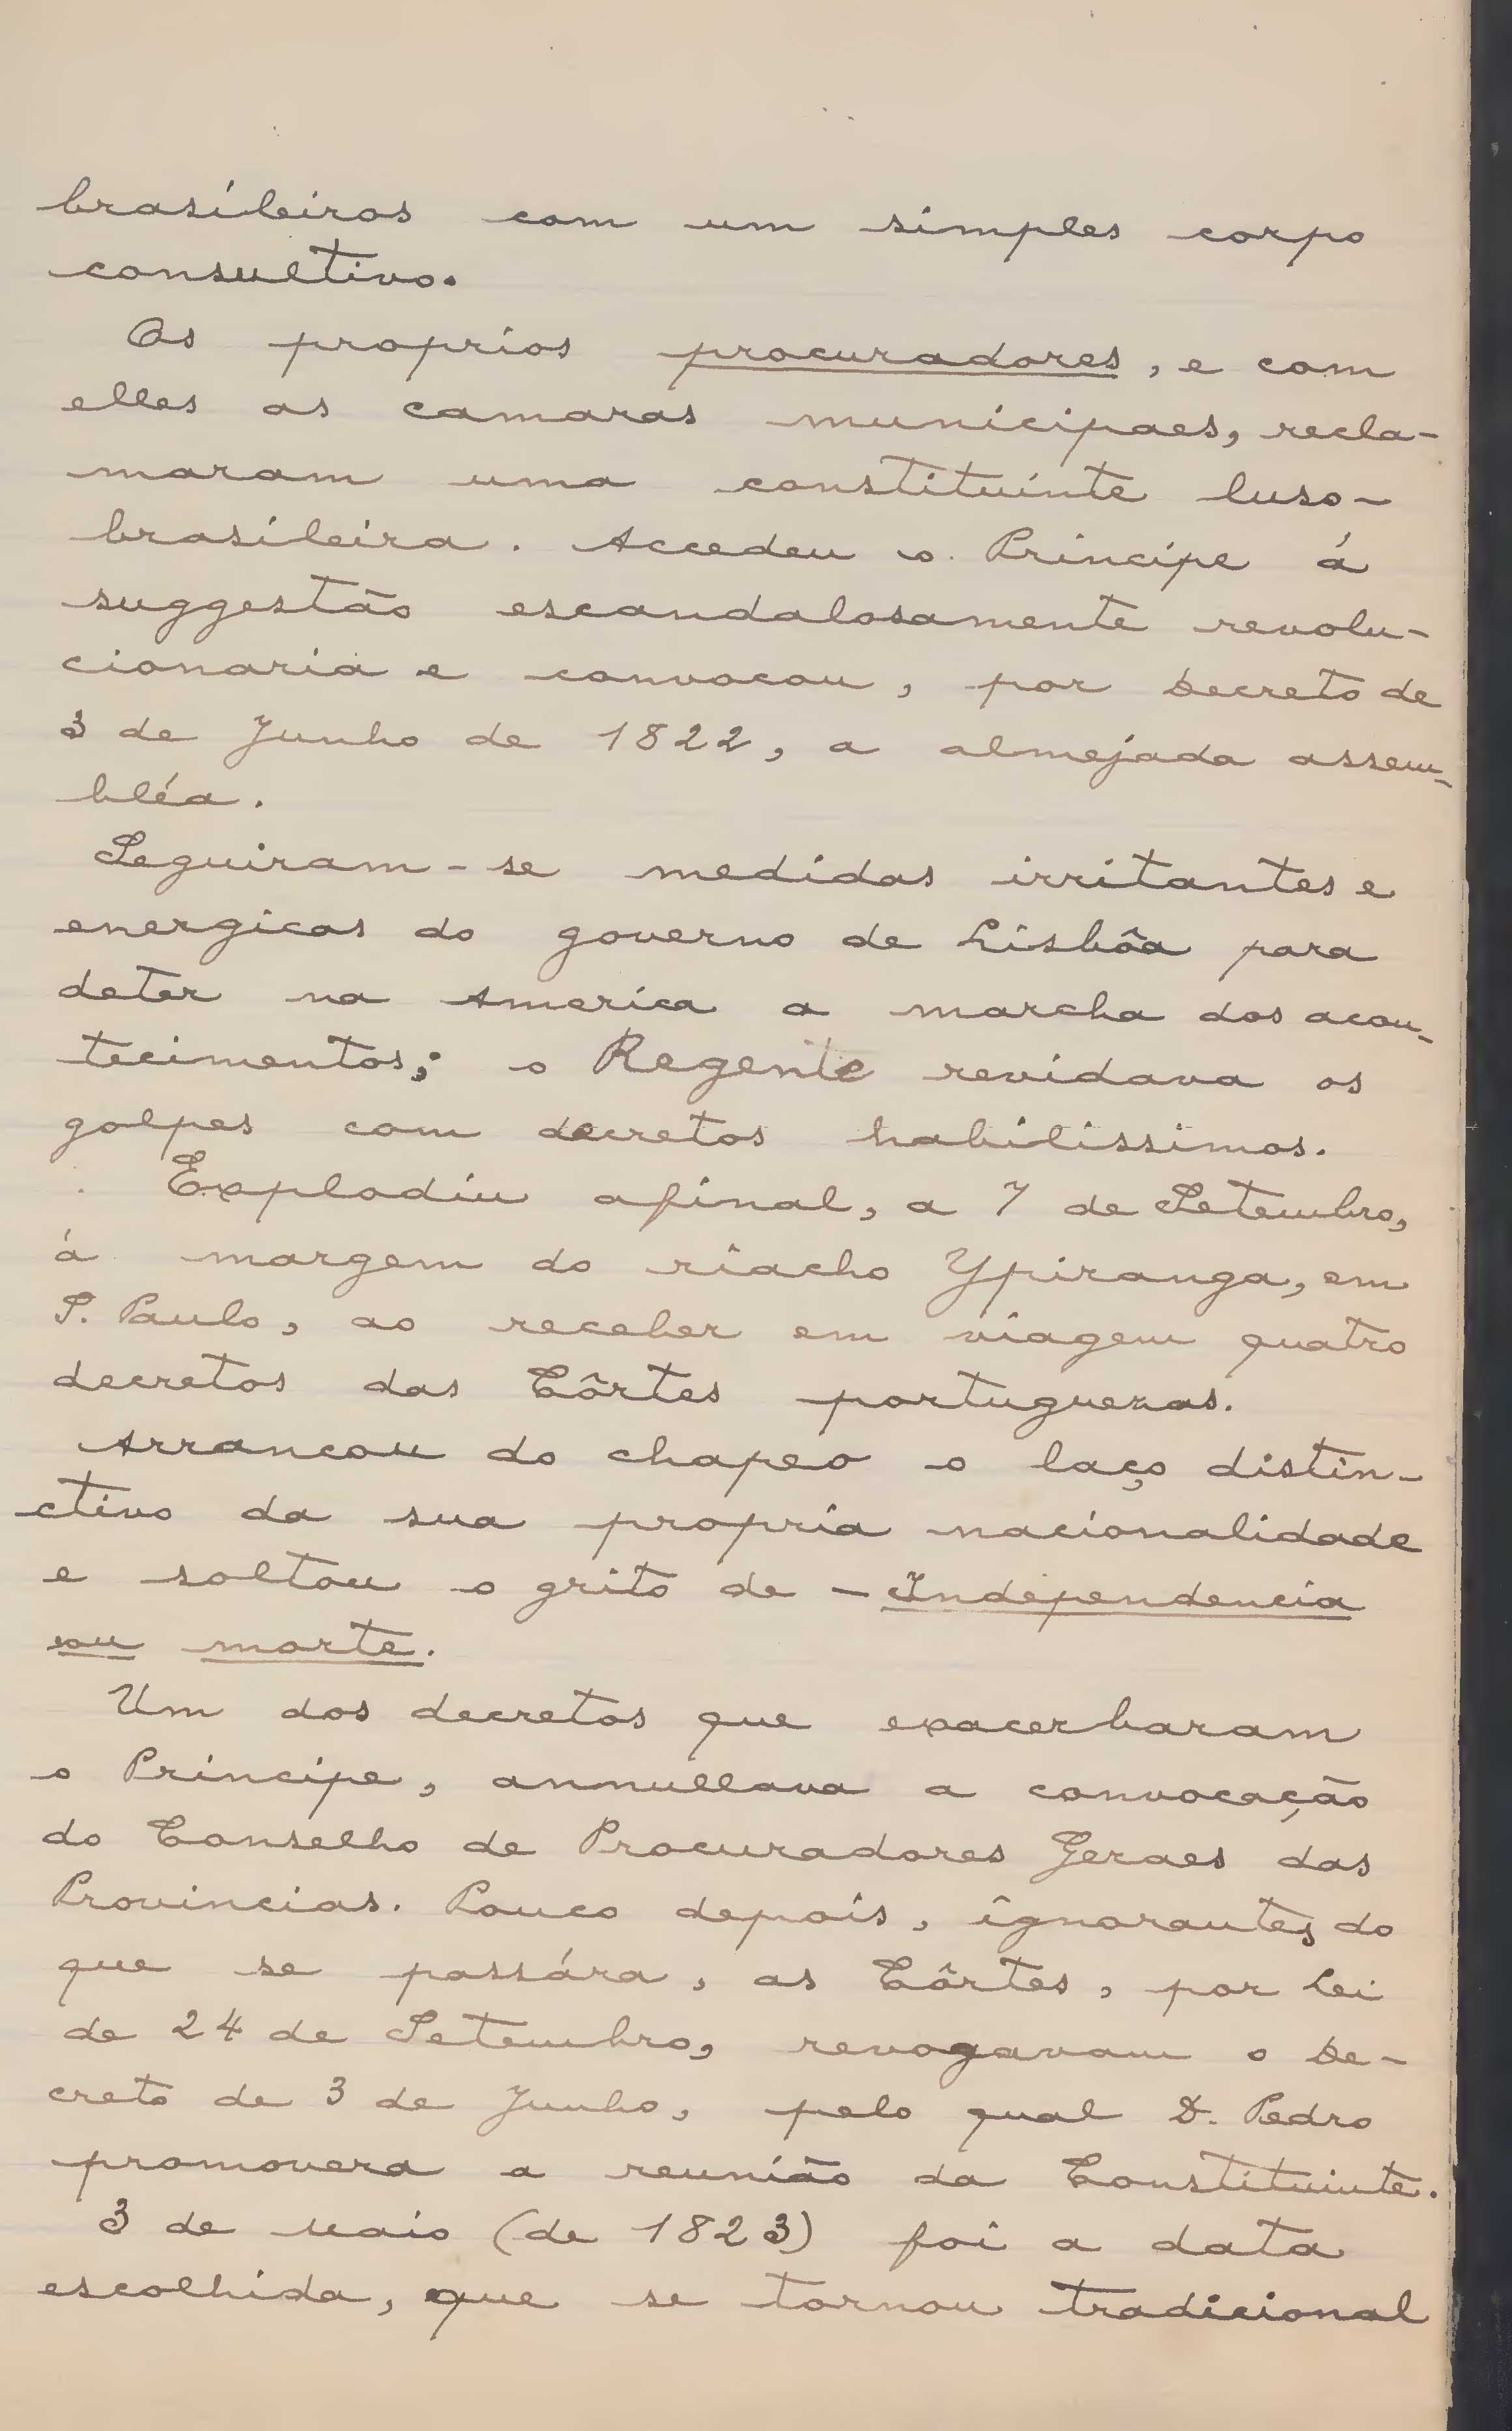 brasileiros com um simples corpo
consultivo.
Os proprios procuradores, e com
elles as camaras municipaes, recla-
maram uma constituinte luso-
brasileira. Accedeu o Principe á
suggestão escandalosamente revolu-
cionaria e convocou, por Decreto de
3 de Junho de 1822, a almejada assem-
bléa.
Seguiram-se medidas irritantes e
energicas do governo de Lisbôa para
deter na America a marcha dos acon-
tecimentos; o Regente revidava os
golpes com decretos habilissimos.
Explodiu afinal, a 7 de Setembro,
á margem do riacho Ypiranga, em
S. Paulo, ao receber em viagem quatro
decretos das Côrtes portuguezas.
Arrancou do chapeo o laço distin-
ctivo da sua propria nacionalidade
e soltou o grito de - Independencia
ou morte.
Um dos decretos que exacerbaram
o Principe, annullava a convocação
do Conselho de Procuradores Geraes das
Provincias. Pouco depois, ignorantes do
que se passára, as Côrtes, por Lei
de 24 de Setembro, revogavam o De-
creto de 3 de Junho, pelo qual D. Pedro
promovera a reunião da Constituinte.
3 de Maio (de 1823) foi a data
escolhida, que se tornou tradicional